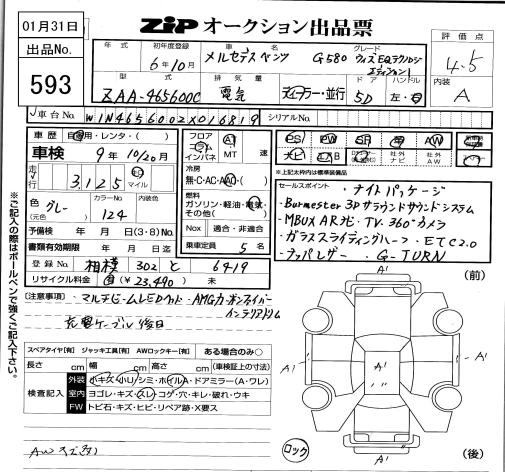 01月31日
ZIP オークション出品票
出品No.
593
年式
初年度登録
6年10月
車名
メルセデスベンツ G580
グレード
ウィズEQテクノロジー
エディション1
評価点
4.5
内装
A
型式
ZAA-465600C
排気量
電気
ディーラー・並行
ドア
5D
ハンドル
左・右
車台No.
W1N4656002X016819
シリアルNo.
車歴 自家用・レンタ・( )
車検 9年10/20月
走行 3,125 km マイル
色 グレー
(元色)
カラーNo.
124
内装色
予備検 年 月 日(3・8)No.
書類有効期限 年 月 日迄
登録No. 相模 302 と 6419
リサイクル料金 有(¥23,490) 未
フロア
コラム
インパネ
AT
MT 速
冷房
無・C・AC・AAC・( )
燃料
ガソリン・軽油・電気・
その他( )
Nox 適合・非適合
乗車定員 5 名
PS PW SR AW
ナビ
社外
ナビ
社外
AW
※上記太枠内は標準装備品
セールスポイント
・ナイトパッケージ
・Burmester 3Dサラウンドサウンドシステム
・MBUX ARナビ・TV・360°カメラ
・ガラススライディングルーフ・ETC2.0
・ナッパレザー・G-TURN
※ご記入の際はボールペンで強くご記入下さい。
注意事項・マルチビームLEDヘッド・AMGカーボンファイバー
インテリアトリム
充電ケーブル後日
スペアタイヤ[有] ジャッキ工具[有] AWロックキー[有] ある場合のみ○
長さ cm 幅 cm 高さ cm (車検証上の寸法)
検査記入
外装 小キズ・小凹・シミ・ホイルA・ドアミラー(A・ワレ)
室内 ヨゴレ・キズ・スレ・コゲ・穴・キレ・破れ・ウキ
FW トビ石・キズ・ヒビ・リペア跡・X要ス
AWスエ割
A'
(前)
A'
A'
A'
A'
(後)
ロック